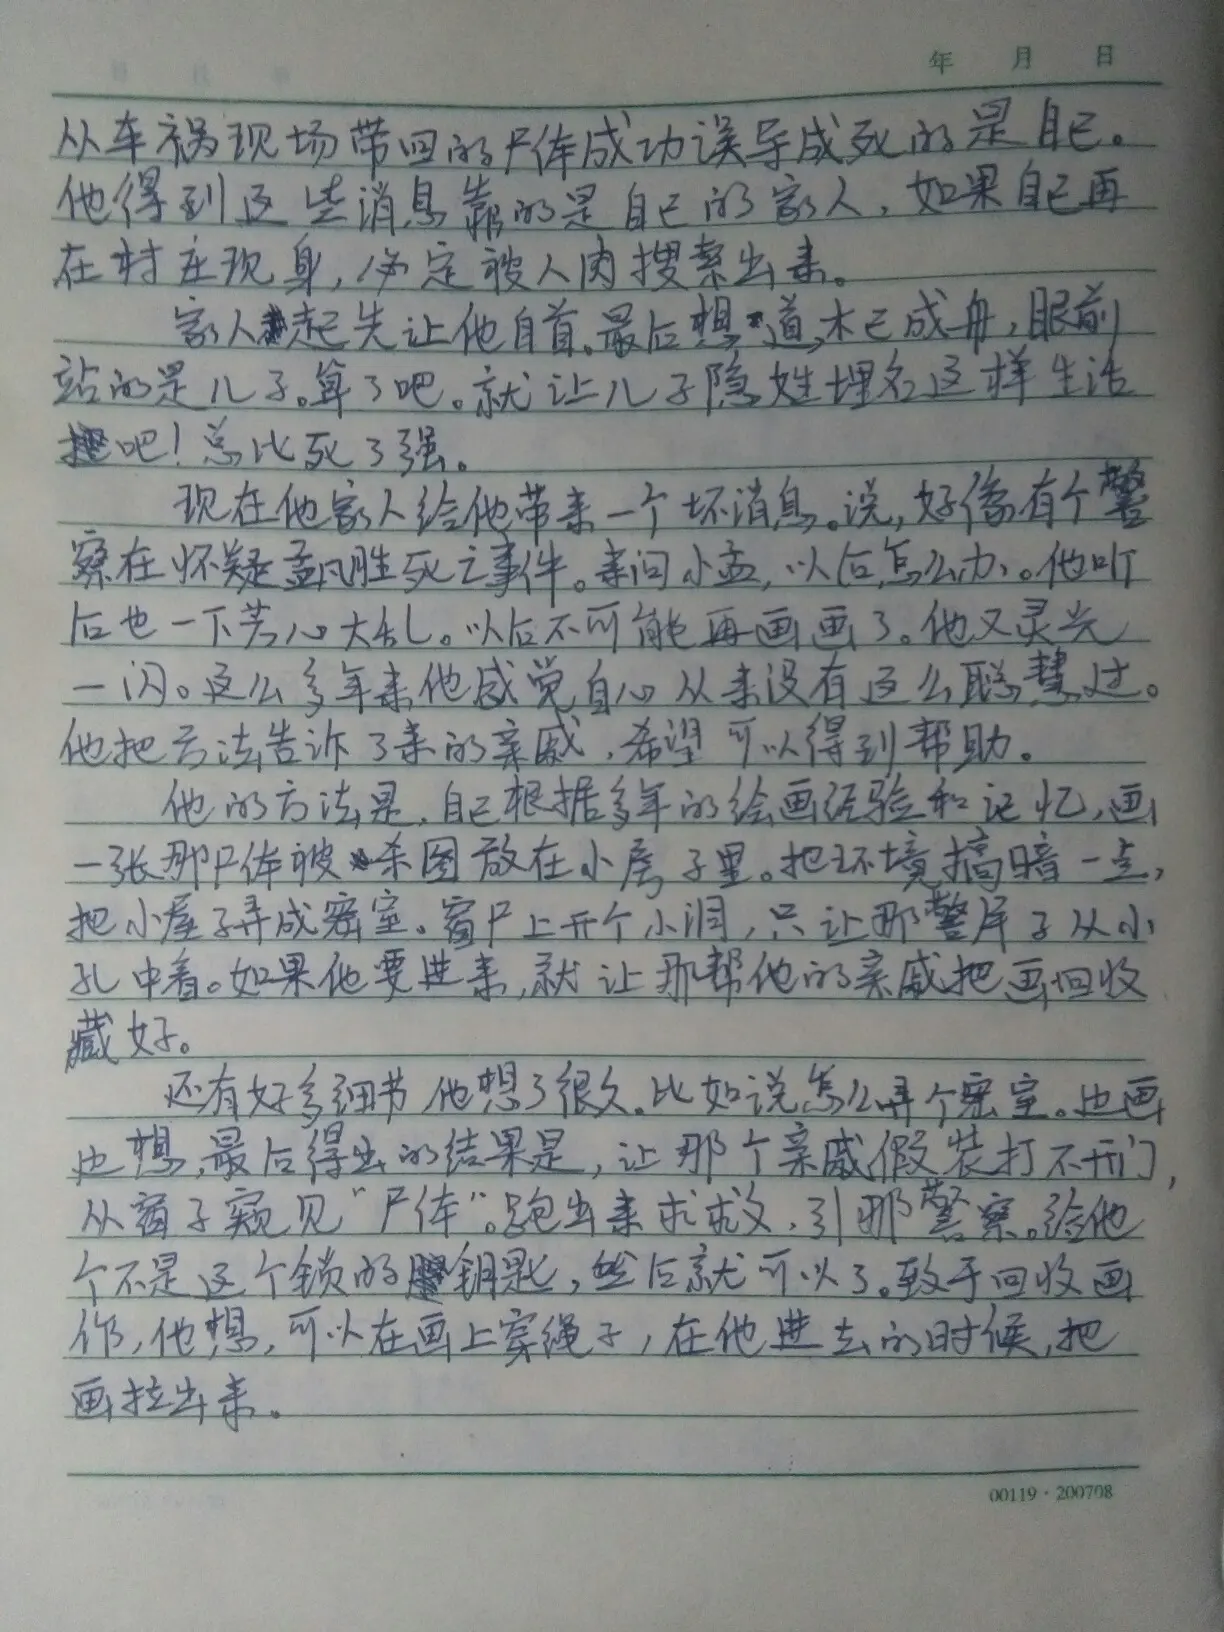 年 月 日
从车祸现场带回的尸体成功误导成死的是自己。
他得到这些消息靠的是自己的家人，如果自己再
在村庄现身，必定被人肉搜索出来。
家人起先让他自首。最后想道，木已成舟，眼前
站的是儿子。算了吧。就让儿子隐姓埋名这样生活
吧！总比死了强。
现在他家人给他带来一个坏消息。说，好像有个警
察在怀疑孟凡胜死亡事件。来问小孟，以后怎么办。他听
后也一下芳心大乱。以后不可能再画画了。他又灵光
一闪。这么多年来他感觉自心从来没有这么聪慧过。
他把方法告诉了来的亲戚，希望可以得到帮助。
他的方法是，自己根据多年的绘画经验和记忆，画
一张那尸体被杀图放在小屋子里。把环境搞暗一点，
把小屋子弄成密室。窗户上开个小洞，只让那警犀子从小
孔中看。如果他要进来，就让那帮他的亲戚把画回收
藏好。
还有好多细节他想了很久。比如说怎么弄个密室。边画
边想，最后得出的结果是，让那个亲戚假装打不开门，
从窗子窥见“尸体”。跑出来求救，引那警察。给他
个不是这个锁的钥匙，然后就可以了。致于回收画
作，他想，可以在画上穿绳子，在他进去的时候，把
画拉出来。
00119·200708